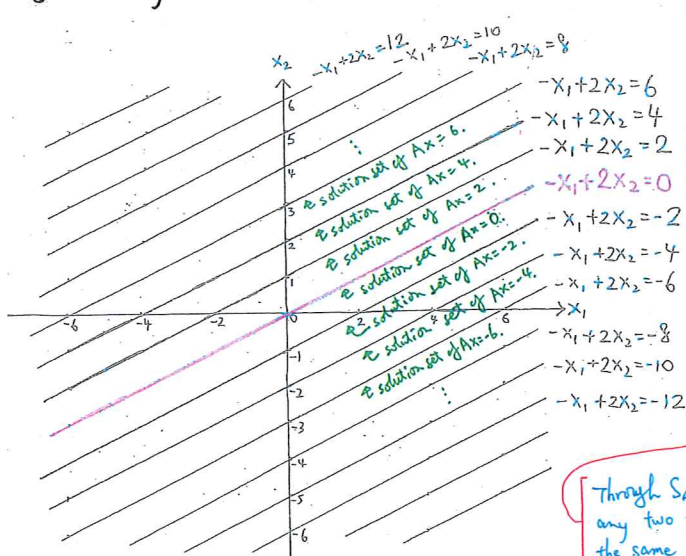 -x₁+2x₂=12
-x₁+2x₂=10
-x₁+2x₂=8
x₂
-x₁+2x₂=6
-x₁+2x₂=4
-x₁+2x₂=2
-x₁+2x₂=0
-x₁+2x₂=-2
-x₁+2x₂=-4
-x₁+2x₂=-6
x₁
-x₁+2x₂=-8
-x₁+2x₂=-10
-x₁+2x₂=-12
6
5
3
2
1
0
-1
-2
-3
-4
-5
-6
-6 -4 -2 2 4 6
⋮
solution set of Ax=6.
solution set of Ax=4.
solution set of Ax=2.
solution set of Ax=0.
solution set of Ax=-2.
solution set of Ax=-4.
solution set of Ax=-6.
⋮
Through
any two
the same